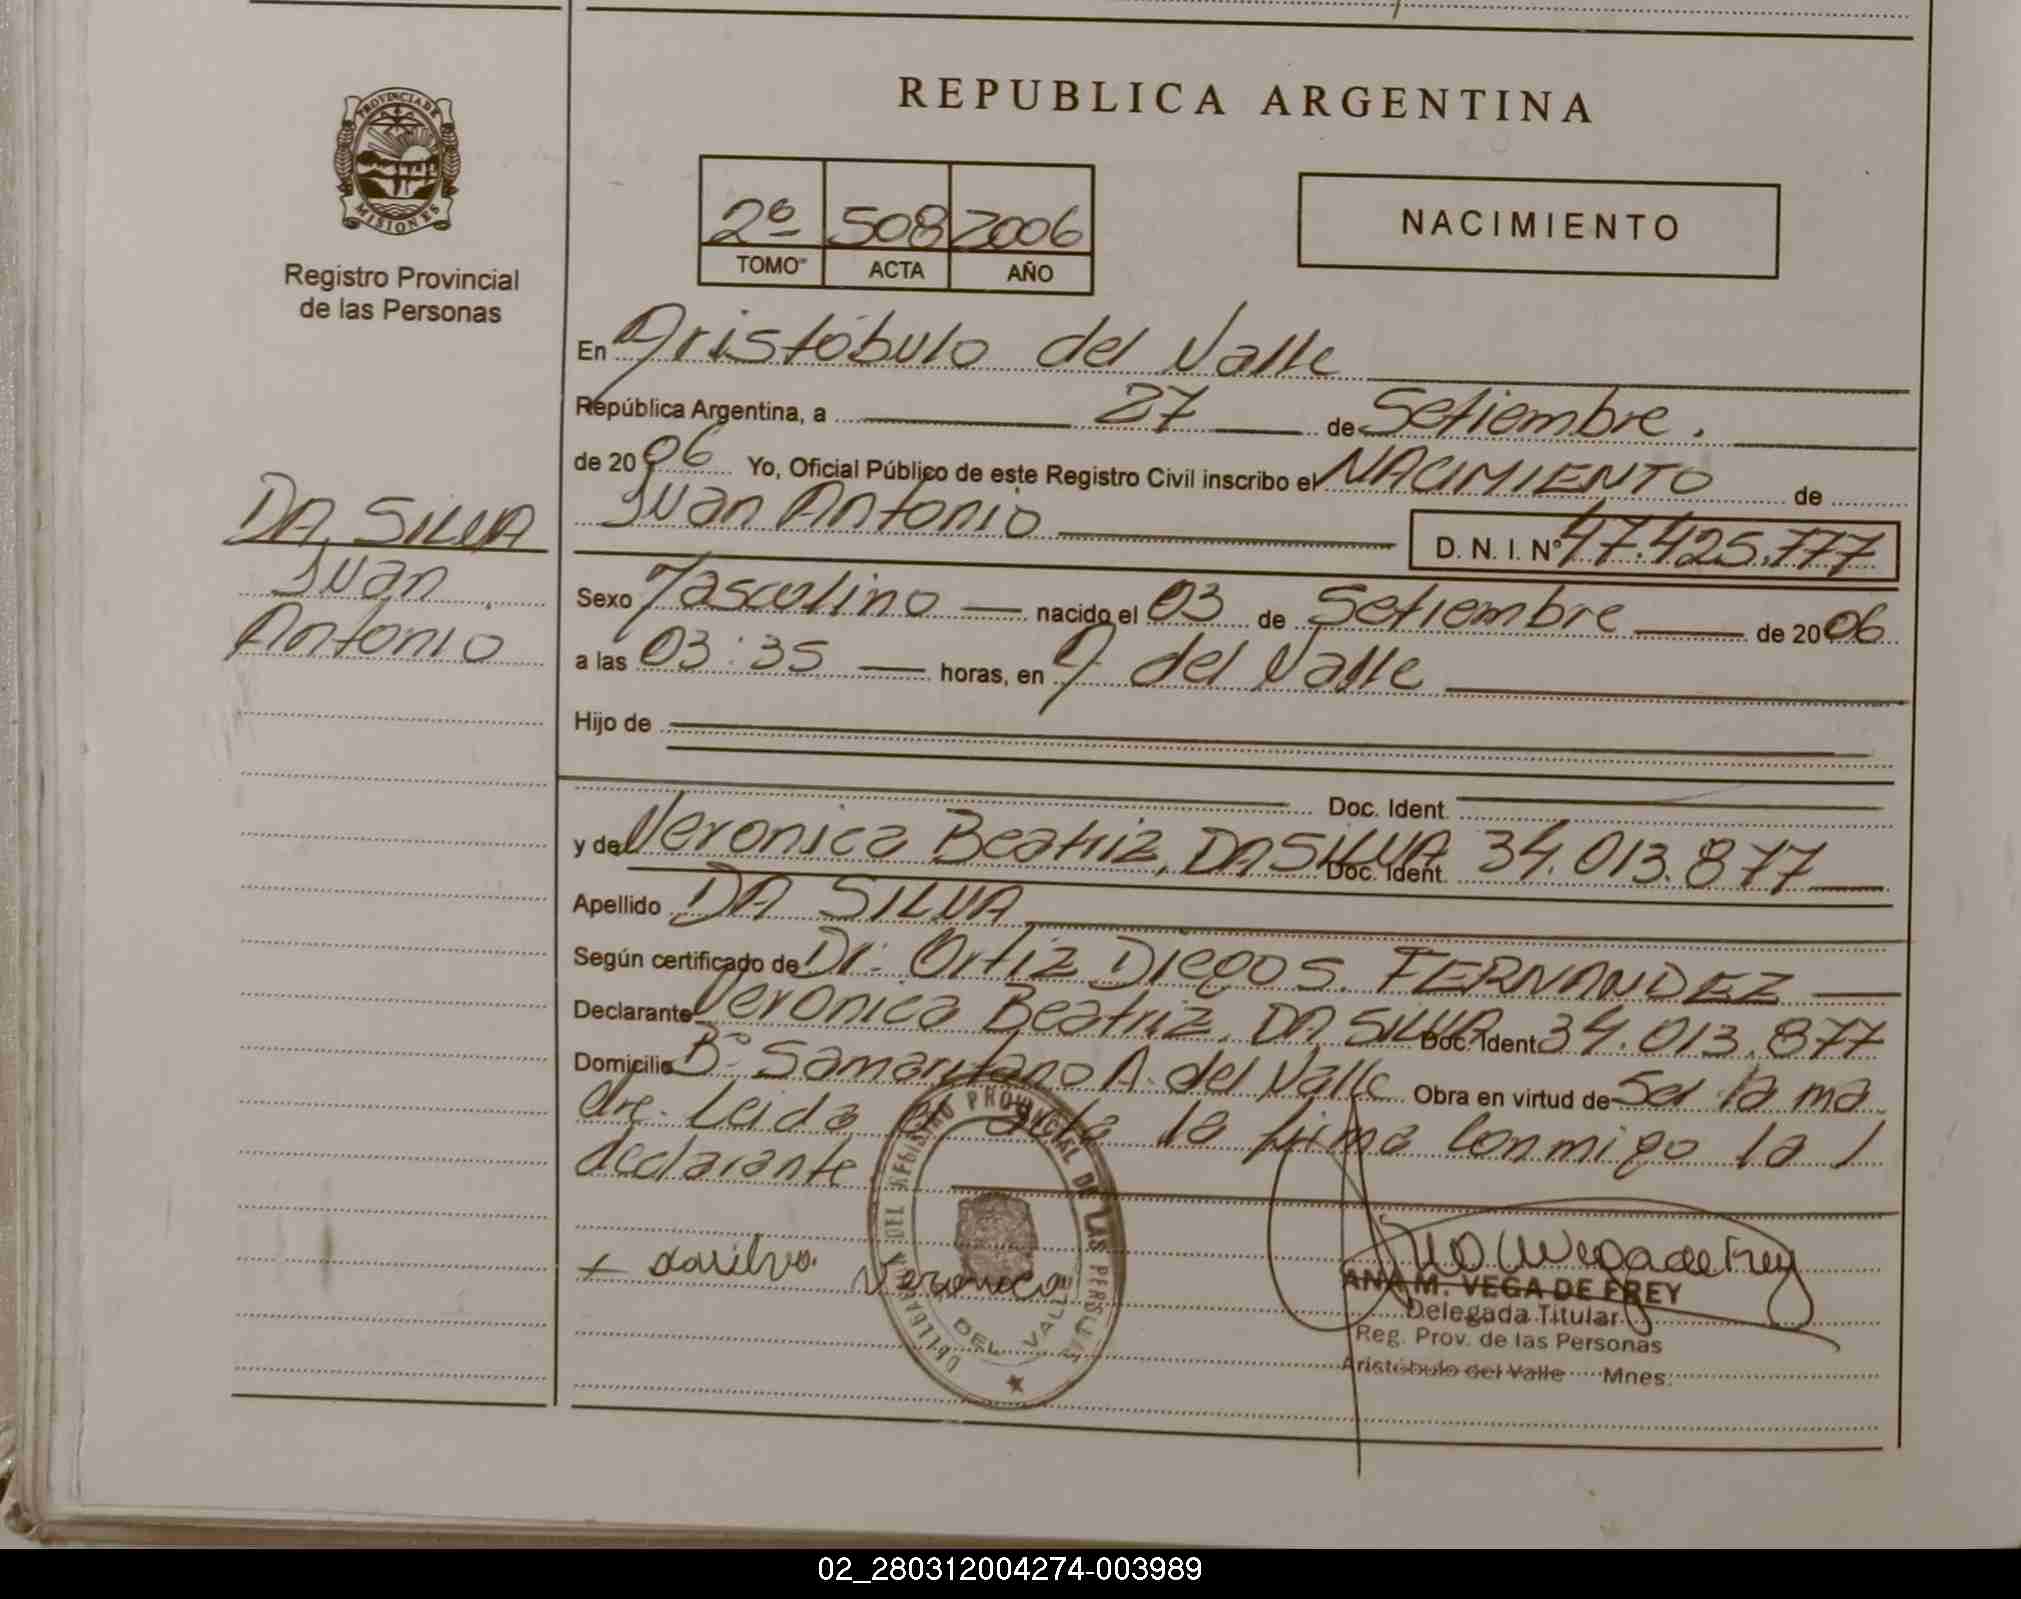 REPUBLICA ARGENTINA
PROVINCIA DE
MISIONES
Registro Provincial
de las Personas
2º 508 2006
TOMOº ACTA AÑO
NACIMIENTO
En Aristóbulo del Valle
República Argentina, a 27 de Setiembre.
de 2006 Yo, Oficial Público de este Registro Civil inscribo el NACIMIENTO de
Juan Antonio D. N. I. Nº 47.425.777
DA SILVA
Juan
Antonio
Sexo Masculino nacido el 03 de Setiembre de 2006
a las 03:35 horas, en A del Valle
Hijo de
Doc. Ident.
y de Veronica Beatriz, DA SILVA Doc. Ident. 34.013.877
Apellido DA SILVA
Según certificado de Dr. Ortiz Diego S. FERNANDEZ
Declarante Veronica Beatriz, DA SILVA Doc. Ident 34.013.877
Domicilio Bº Samaritano A. del Valle Obra en virtud de Ser la ma
dre. Leida el acta la firma conmigo la
declarante
+ dasilva. Veronica
DELEGACIÓN DEL REGISTRO PROVINCIAL DE LAS PERSONAS
DEL VALLE
ANA M. VEGA DE FREY
Delegada Titular
Reg. Prov. de las Personas
Aristóbulo del Valle Mnes.
02_280312004274-003989